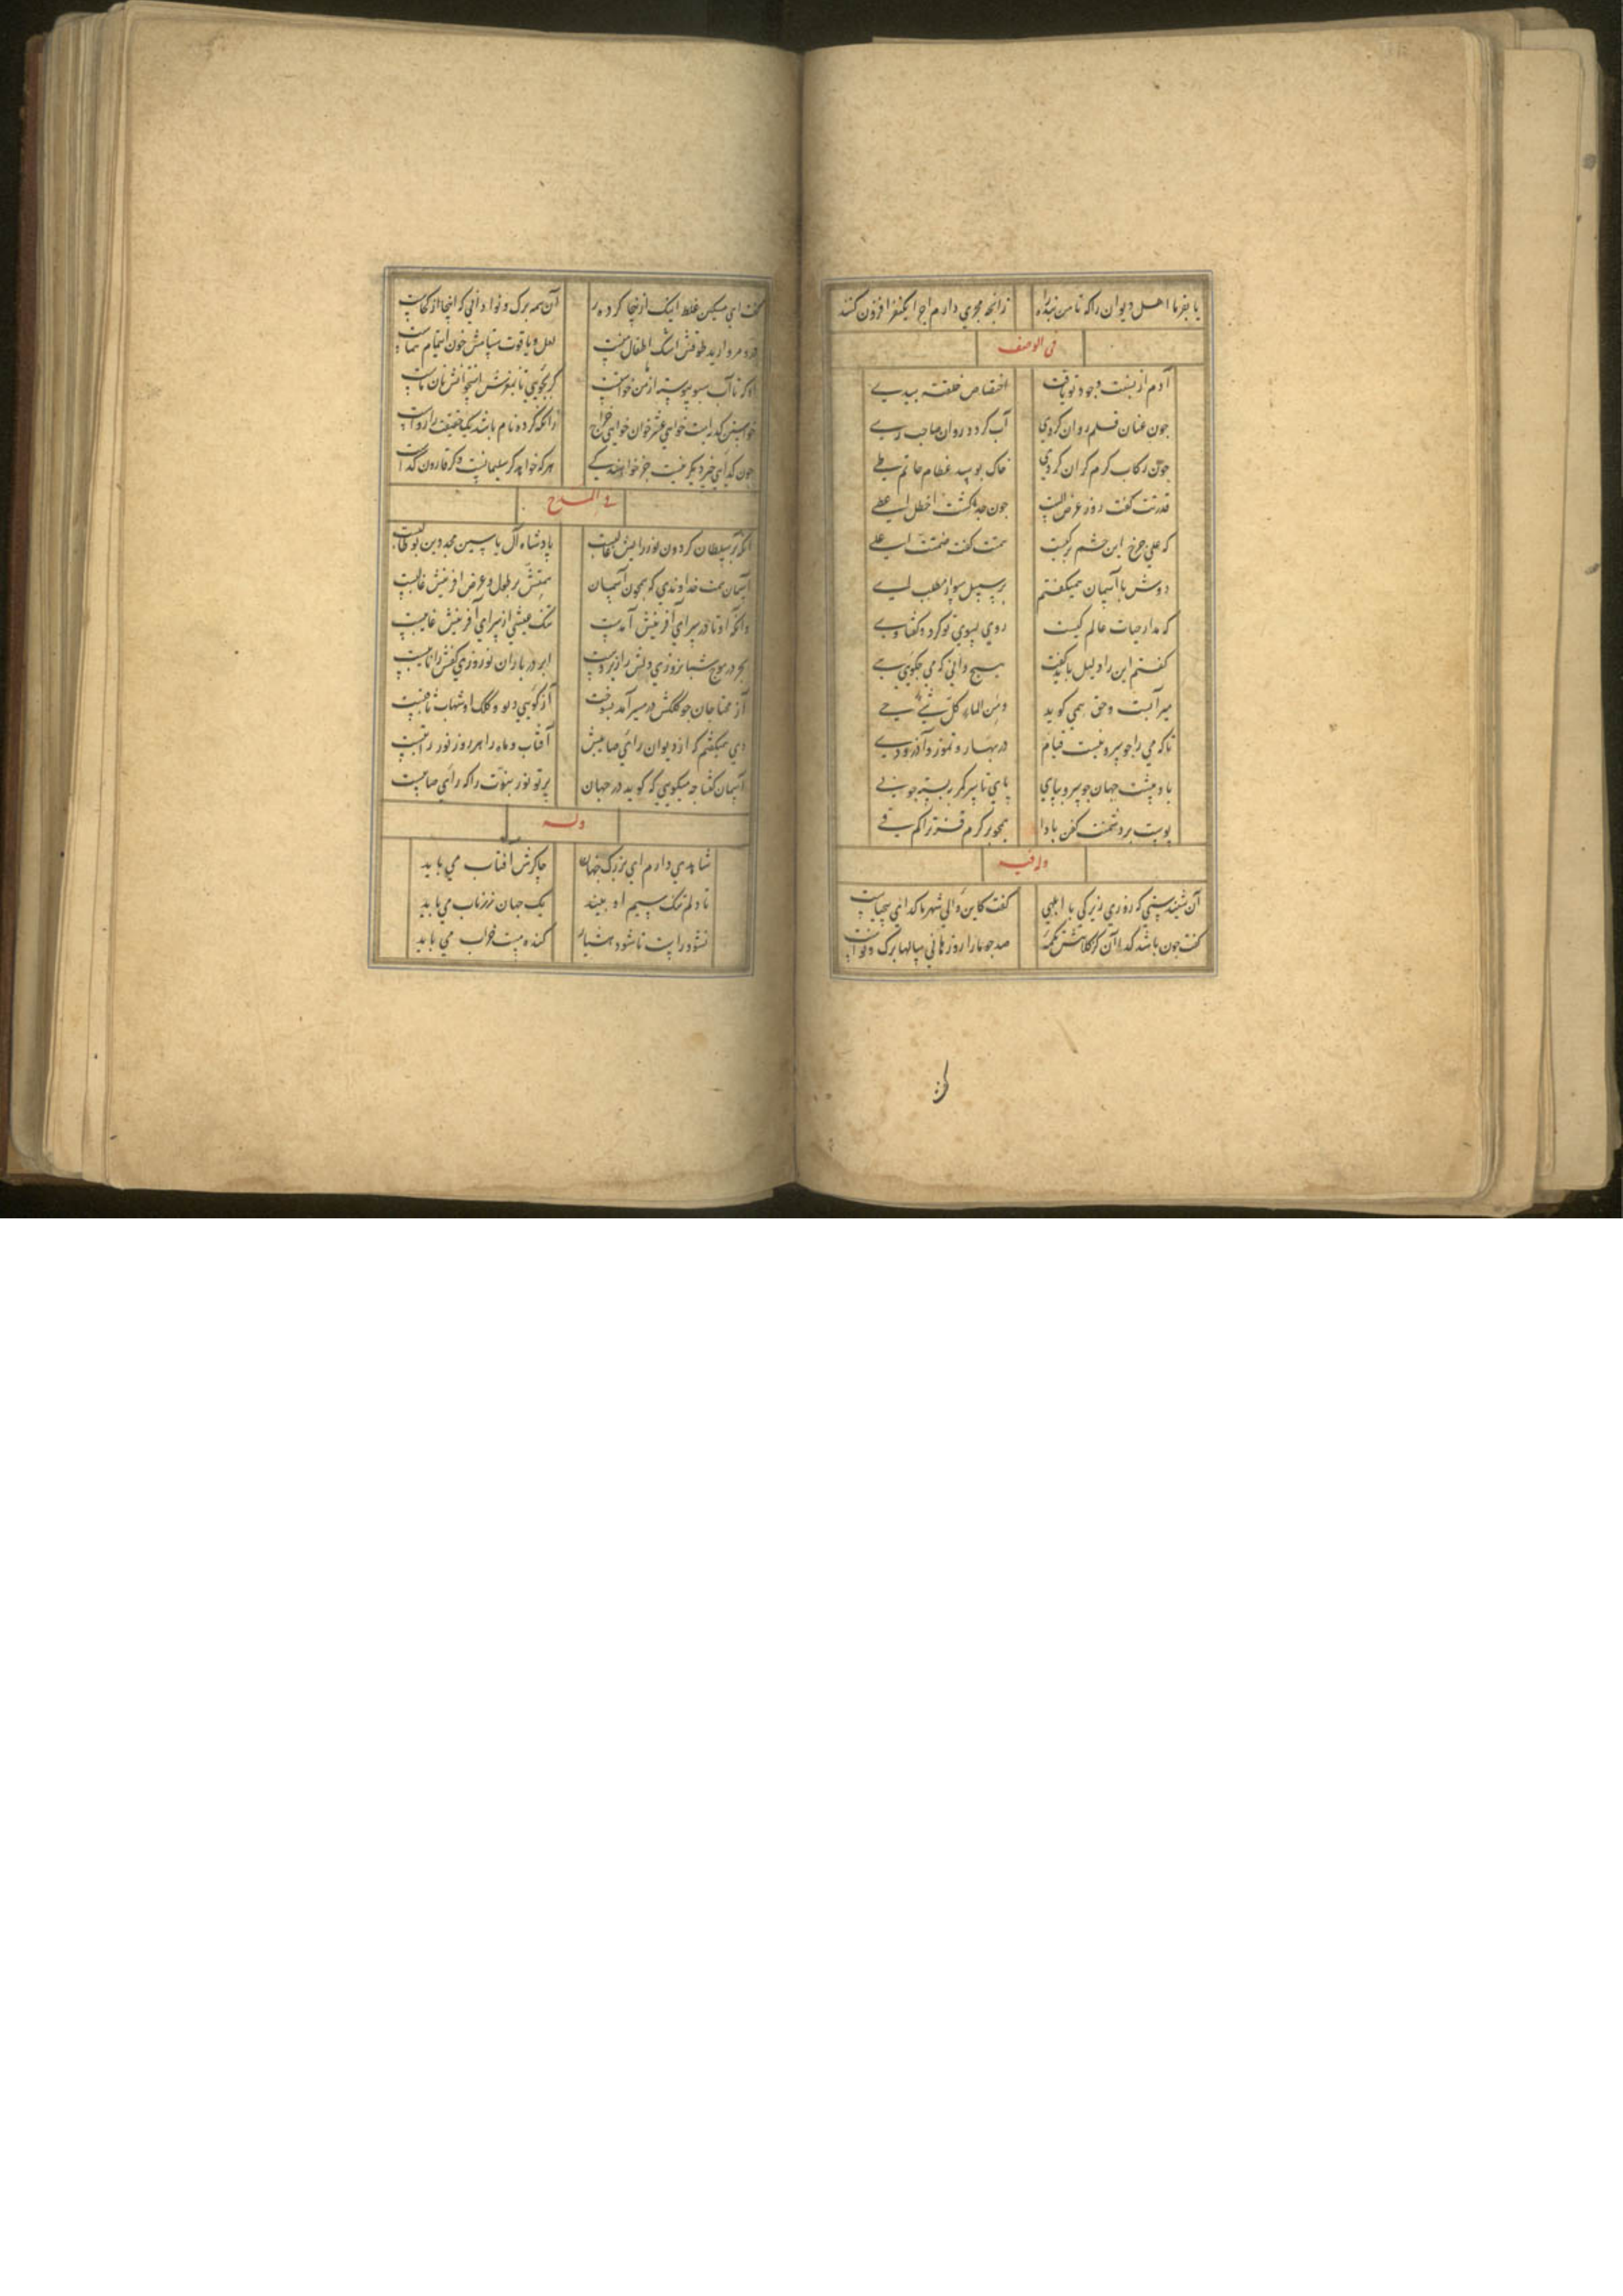 یا بفرما اهل دیوان را که تا من بنده را زانچه مجری دارم اجرا یکنفر افزون کنند
فی الوصف
آدم از نسبت وجود تو یافت اختصاص خلقته بیدی
چون عنان قلم روان کردی آب گردد روان صاحب ری
چون رکاب کرم گران کردی خاک بوسد عظام حاتم طی
قدرتت گفت روز عرض الست
همتت گفت
که علی چرخ این حشم برکیست
دوش با آسمان همیگفتم بر سبیل سوال مطلب لی
که مدار حیات عالم کیست روی بسوی تو کرد و گفتا وی
گفتم این را دلیل باید گفت هیچ دانی که می چگوی هی
میر آبست و حق همی گوید و من الماء کل شئ حی
تا که می را چو سرو نیست قیام در بهار و تموز و آذر و دی
باد پیشت جهان چو سرو بپای پای تا سر کمر بسته چو نی
پوست بر دشمنت کفن بادا
وله فیه
آن شنیدستی که روزی زیرکی با ابلهی گفت کاین والی شهر ما گدائی بیحیاست
گفت چون باشد گدا آن کز کلاهش تکمه صد چو ما را روزها نی سالها برگ و نواست
گفت ای مسکین غلط اینک از اینجا کرده آن همه برگ و نوا دانی که آنجا از کجاست
در و مروارید طوقش اشک اطفال منست لعل و یاقوت ستامش خون ایتام شماست
او که تا آب سبو پیوسته از من خواستست گر بجویی تا بمغز استخوانش نان ماست
خواستن کدیه است خواهی عشر خوان خواهی خراج زانکه گر ده نام باشد یک حقیقت را رواست
چون گدایی چیز دیگر نیست جز خواهندگی هر که خواهد گر سلیمانست وگر قارون گداست
فی المدح
آنکه بر سلطان گردون نور رایش غالبست پادشاه آل یاسین مجد دین بوطالبست
آسمان همت خداوندی که همچون آسمان همتش بر طول و عرض آفرینش غالبست
وانکه او تا در سرای آفرینش آمدست تنگ عیشی از سرای آفرینش غایبست
بحر در موج شبانروزی دلش را زیردست ابر در باران نوروزی کفش را نایبست
آز محتاجان چو کلکش در مسیر آمد بسوخت آز گویی دیو و کلک او شهاب ثاقبست
دی همیگفتم که از دیوان رای صایبش آفتاب و ماه را هر روز نور راتبست
آسمان گفتا چه میگویی که گوید در جهان پرتو نور نبوت را که رای صایبست
وله
شاهدی دارم ای بزرگ جهان چاکرش آفتاب می باید
تا دلم تنگ سیم او بیند یک جهان زر ناب می باید
نشود راست تا نشود هشیار کنده مست خراب می باید